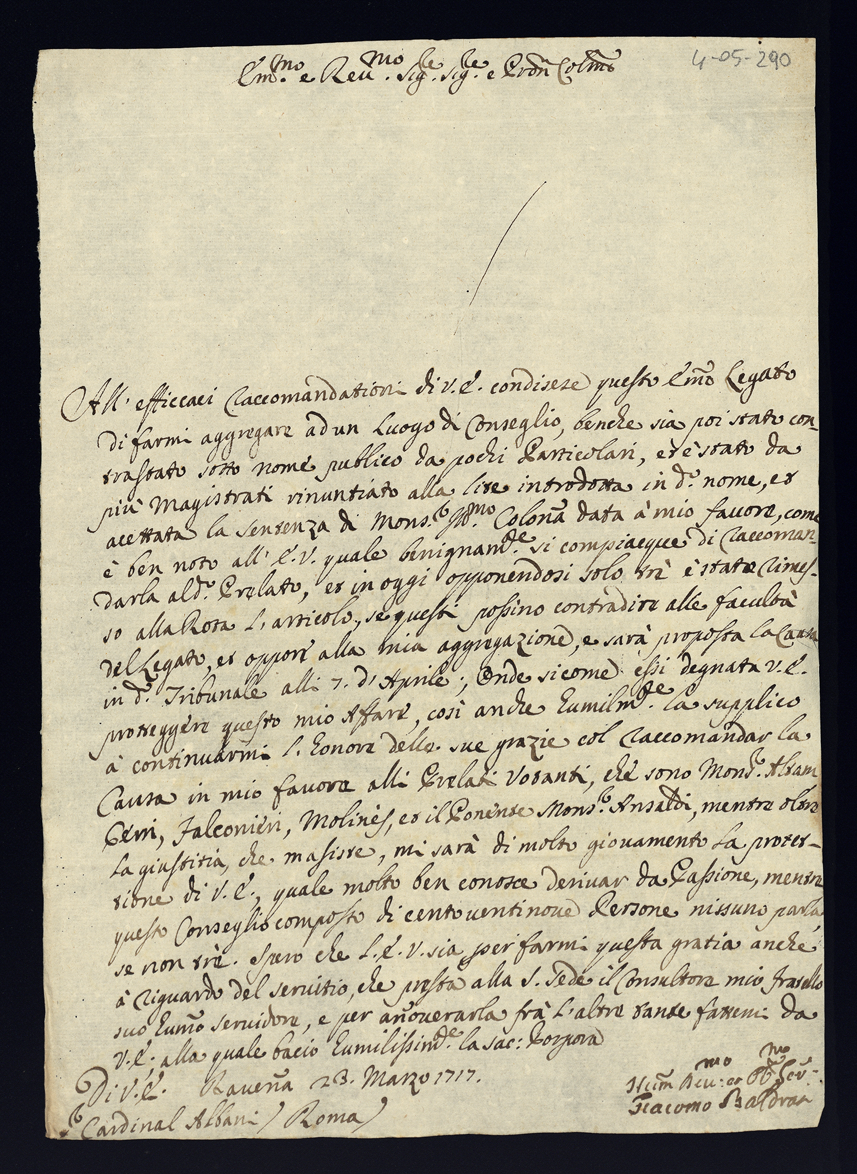 4-05-290
Em.mo e Reu.mo Sig.re Sig.re e Pron Colmo
All' efficcaci raccomandationi di V.E. condisese questo Emo Legato
di farmi aggregare ad un Luogo di Conseglio, benche sia poi stato con-
trastato sotto nome publico da pochi Particolari, et è stato da
più Magistrati rinuntiato alla lite introdotta in d.o nome, et
acettata la sentenza di Mons.r Ill.mo Colona data à mio favore, come
è ben noto all' E.V. quale benignam.te si compiacque di raccoman-
darla al d.o Prelato, et in oggi opponendosi solo trè è stato rimes-
so alla Rota l'articolo, se questi possino contradire alle facultà
del Legato, et oppore alla mia aggregazione, e sarà proposta la Causa
in d.o Tribunale alli 7. d'Aprile; Onde sicome essi degnata V.E.
proteggere questo mio Affare, così anche humilm.te la supplico
à continuarmi l'honore delle sue grazie col raccomandar la
Causa in mio favore alli Prelati Votanti, che sono Mons.r
Cerri, Falconieri, Molines, et il Ponente Mons.r Ansaldi, mentre oltre
la giustitia, che masiste, mi sarà di molto giovamento la protet-
tione di V.E., quale molto ben conosce derivar da Passione, mentre
questo Conseglio composto di centoventinove Persone nissuno parla,
se non trè. Spero che l'E.V. sia per farmi questa gratia anche
à riguardo del servitio, che presta alla S. Sede il Consultore mio fratello
suo humo servidore, e per anoverarla frà l'altre tante fattemi da
V.E. alla quale bacio humilissim.te la sac: Porpora
Di V.E. Ravena 23. Marzo 1717.
Hum Deu: et Ob Ser:
Giacomo Baldrat
S.r Cardinal Albani) Roma)